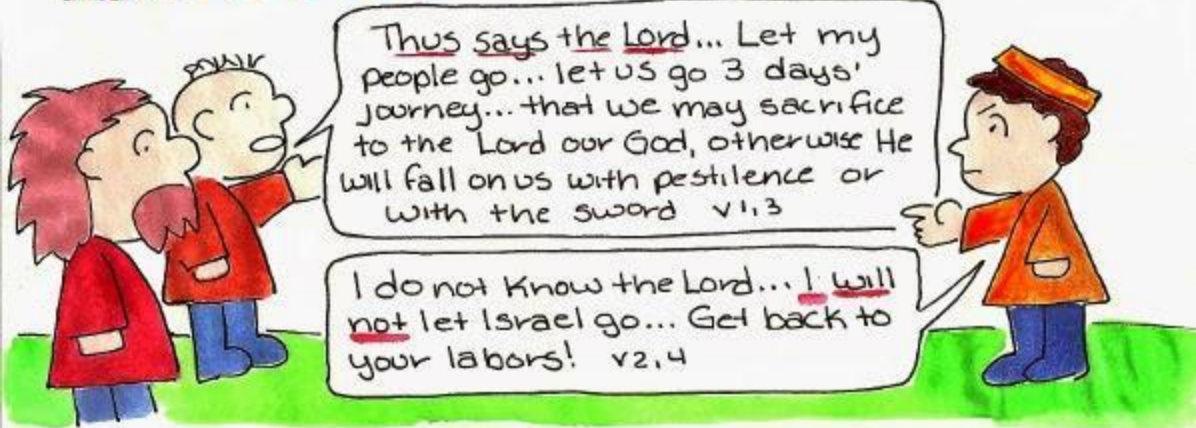 Thus says the Lord... Let my
people go... let us go 3 days'
journey... that we may sacrifice
to the Lord our God, otherwise He
will fall on us with pestilence or
with the sword v1,3
I do not know the Lord... I will
not let Israel go... Get back to
your labors! v2,4